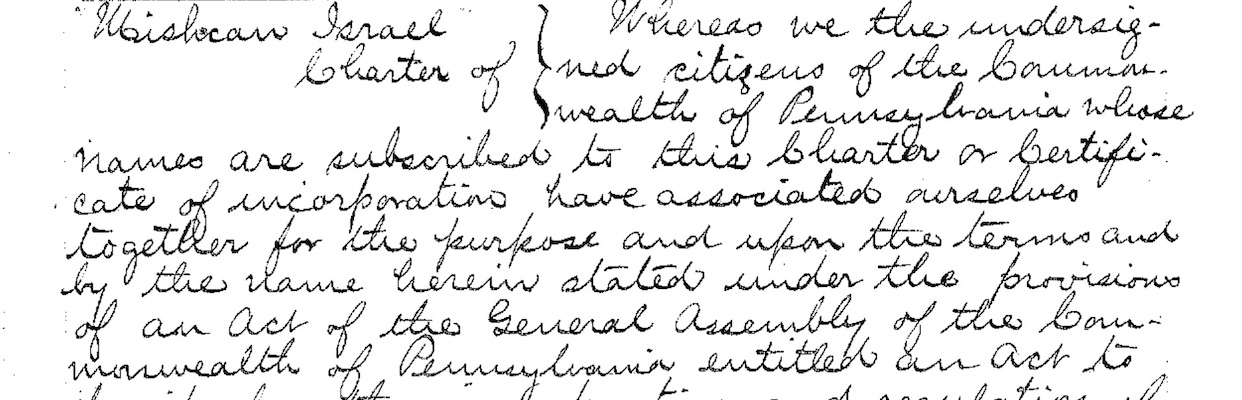 Mishcan Israel } Whereas we the undersig-
Charter of } ned citizens of the Common-
wealth of Pennsylvania whose
names are subscribed to this Charter or Certifi-
cate of incorporation have associated ourselves
together for the purpose and upon the terms and
by the name herein stated under the provisions
of an Act of the General Assembly of the Com-
monwealth of Pennsylvania entitled an Act to